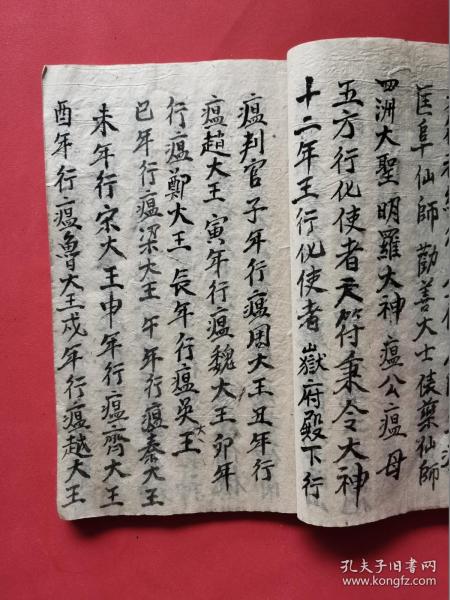 匡阜仙師勸善大士侠藥仙師
四洲大聖明羅大神瘟公瘟母
五方行化使者天符秉令大神
十二年王行化使者嶽府殿下行
瘟判官子年行瘟周大王丑年行
瘟趙大王寅年行瘟魏大王卯年
行瘟鄭大王辰年行瘟吳大王
巳年行瘟梁大王午年行瘟秦大王
未年行宋大王申年行瘟齊大王
酉年行瘟魯大王戍年行瘟越大王
孔夫子旧书网
www.kongfz.com